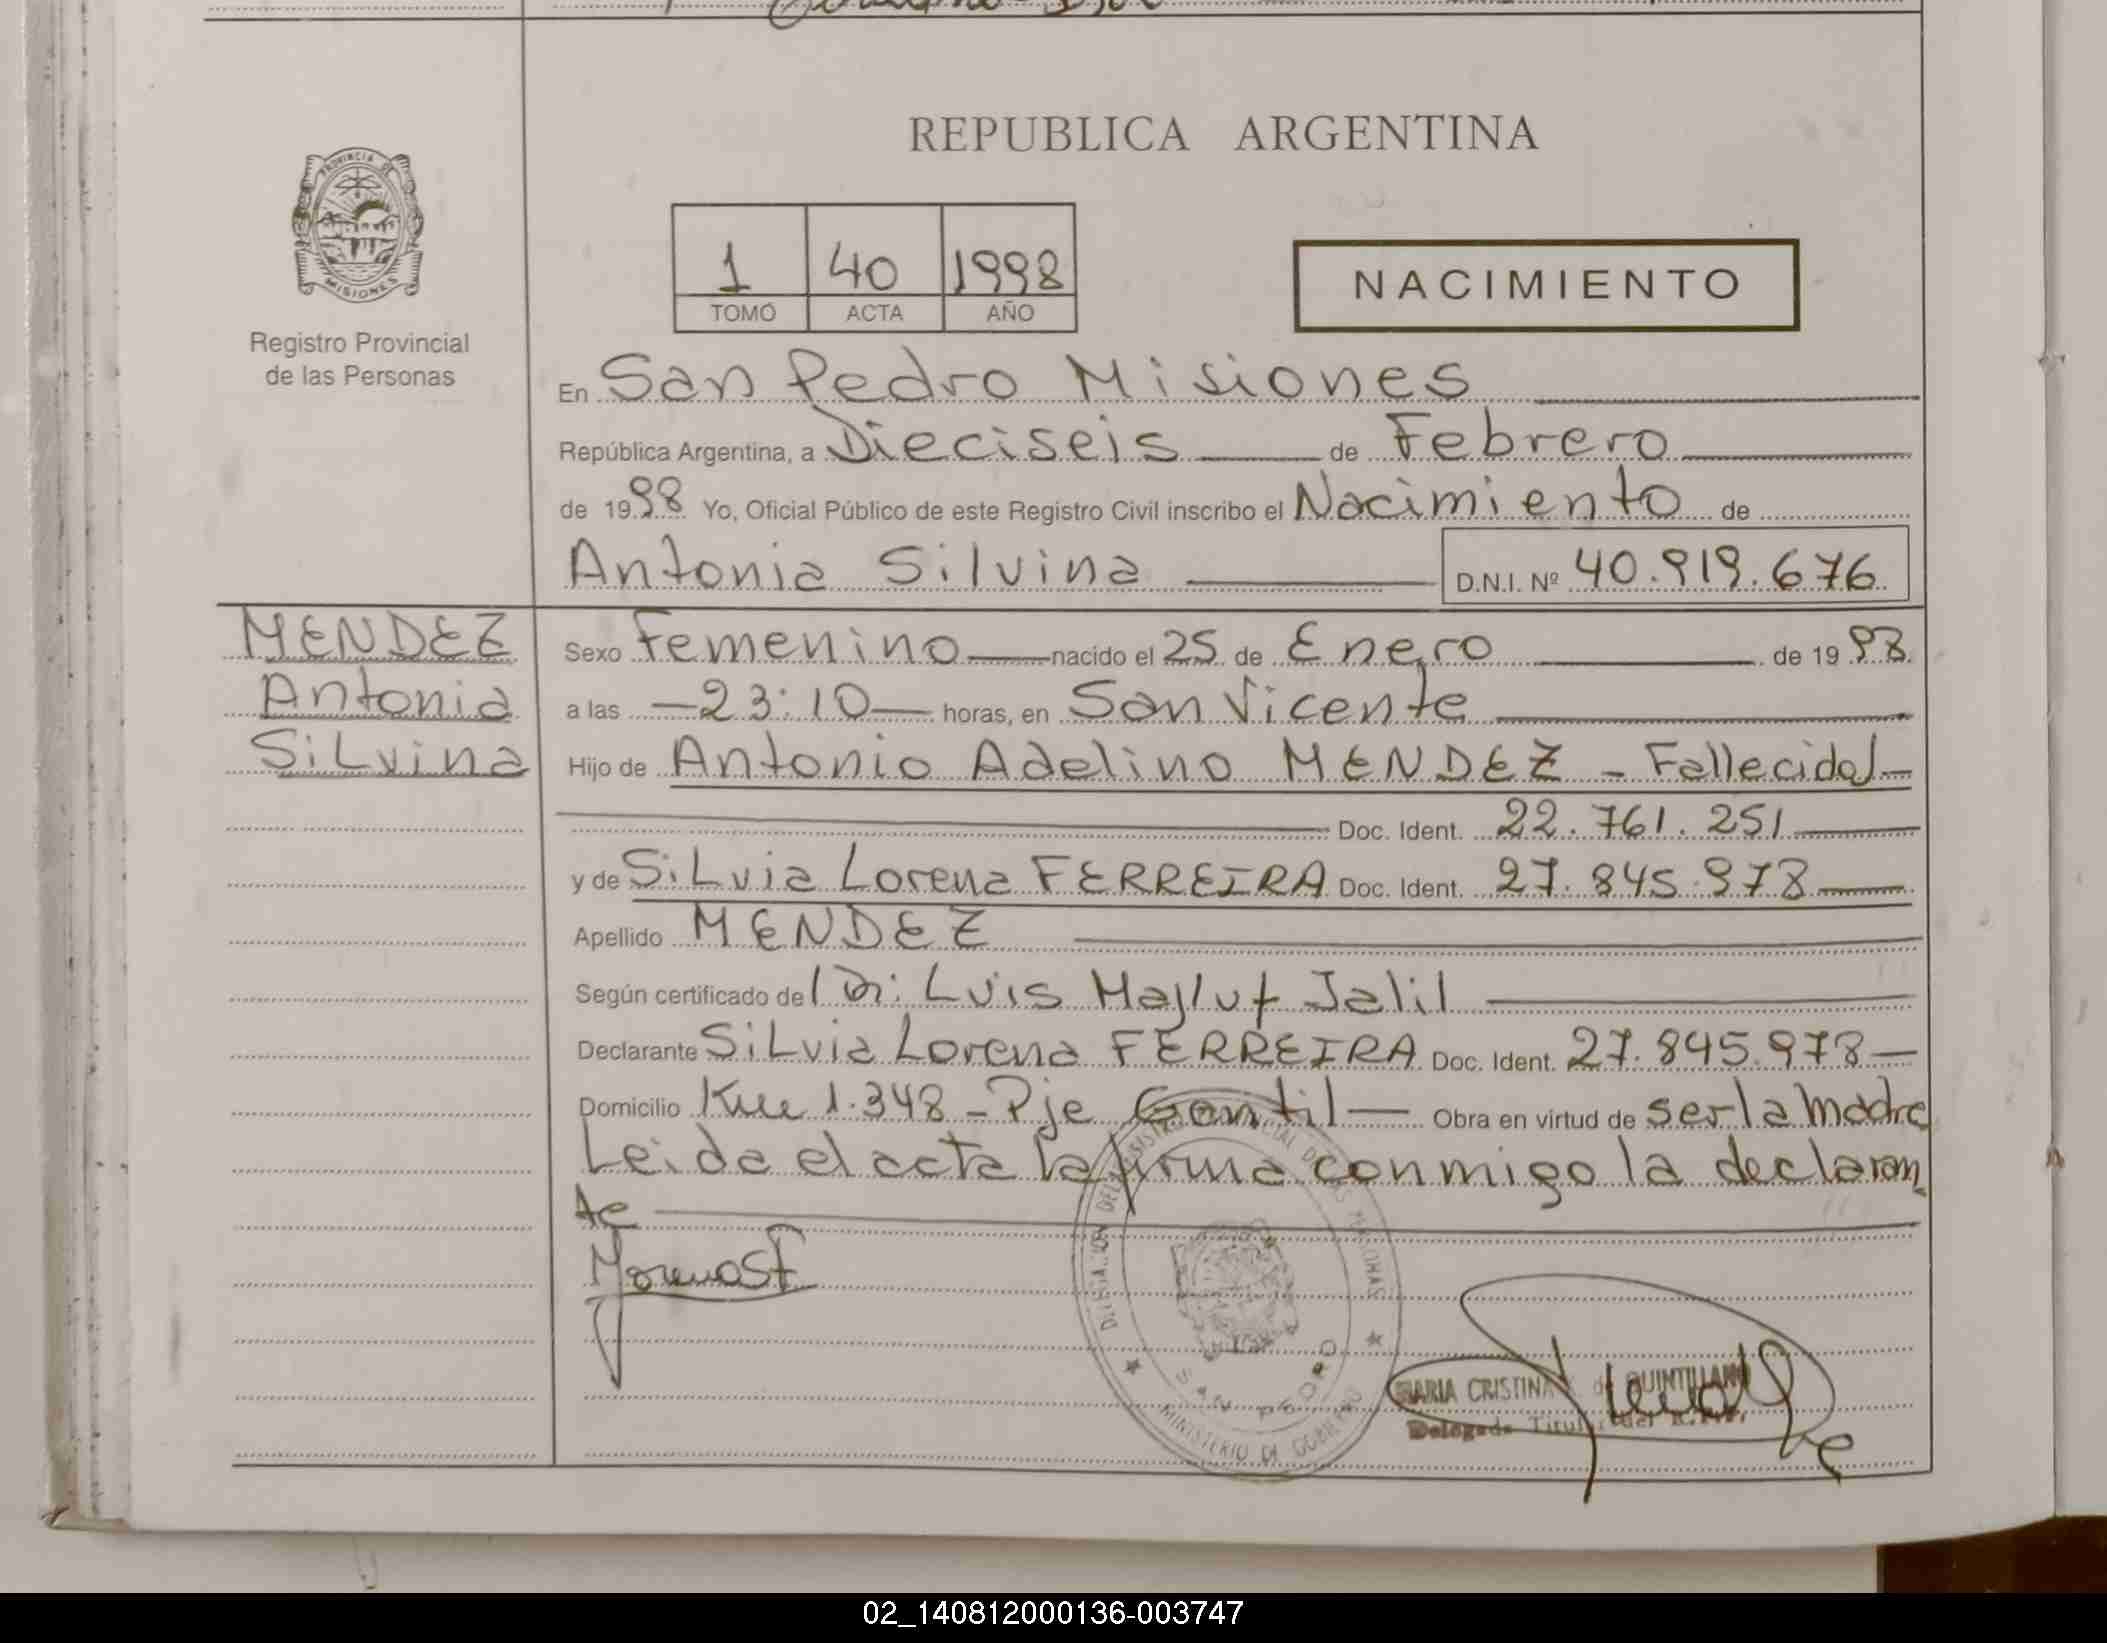 REPUBLICA ARGENTINA
PROVINCIA DE MISIONES
Registro Provincial
de las Personas
1 40 1998
TOMO ACTA AÑO
NACIMIENTO
En San Pedro Misiones
República Argentina, a Dieciseis de Febrero
de 1998 Yo, Oficial Público de este Registro Civil inscribo el Nacimiento de
Antonia Silvina D.N.I. Nº 40.919.676
MENDEZ
Antonia
Silvina
Sexo Femenino nacido el 25 de Enero de 1998
a las 23:10 horas, en San Vicente
Hijo de Antonio Adelino MENDEZ - Fallecido
Doc. Ident. 22.761.251
y de Silvia Lorena FERREIRA Doc. Ident. 27.845.978
Apellido MENDEZ
Según certificado del Dr: Luis Majluf Jalil
Declarante Silvia Lorena FERREIRA Doc. Ident. 27.845.978
Domicilio Km 1.348 - Pje Gentil Obra en virtud de ser la madre
Leida el acta la firma conmigo la declaran
te
DELEGACION DEL REGISTRO PROVINCIAL DE LAS PERSONAS
SAN PEDRO
MINISTERIO DE GOBIERNO
MARIA CRISTINA de QUINTILLAN
Delegada Titular del R.P.P.
02_140812000136-003747